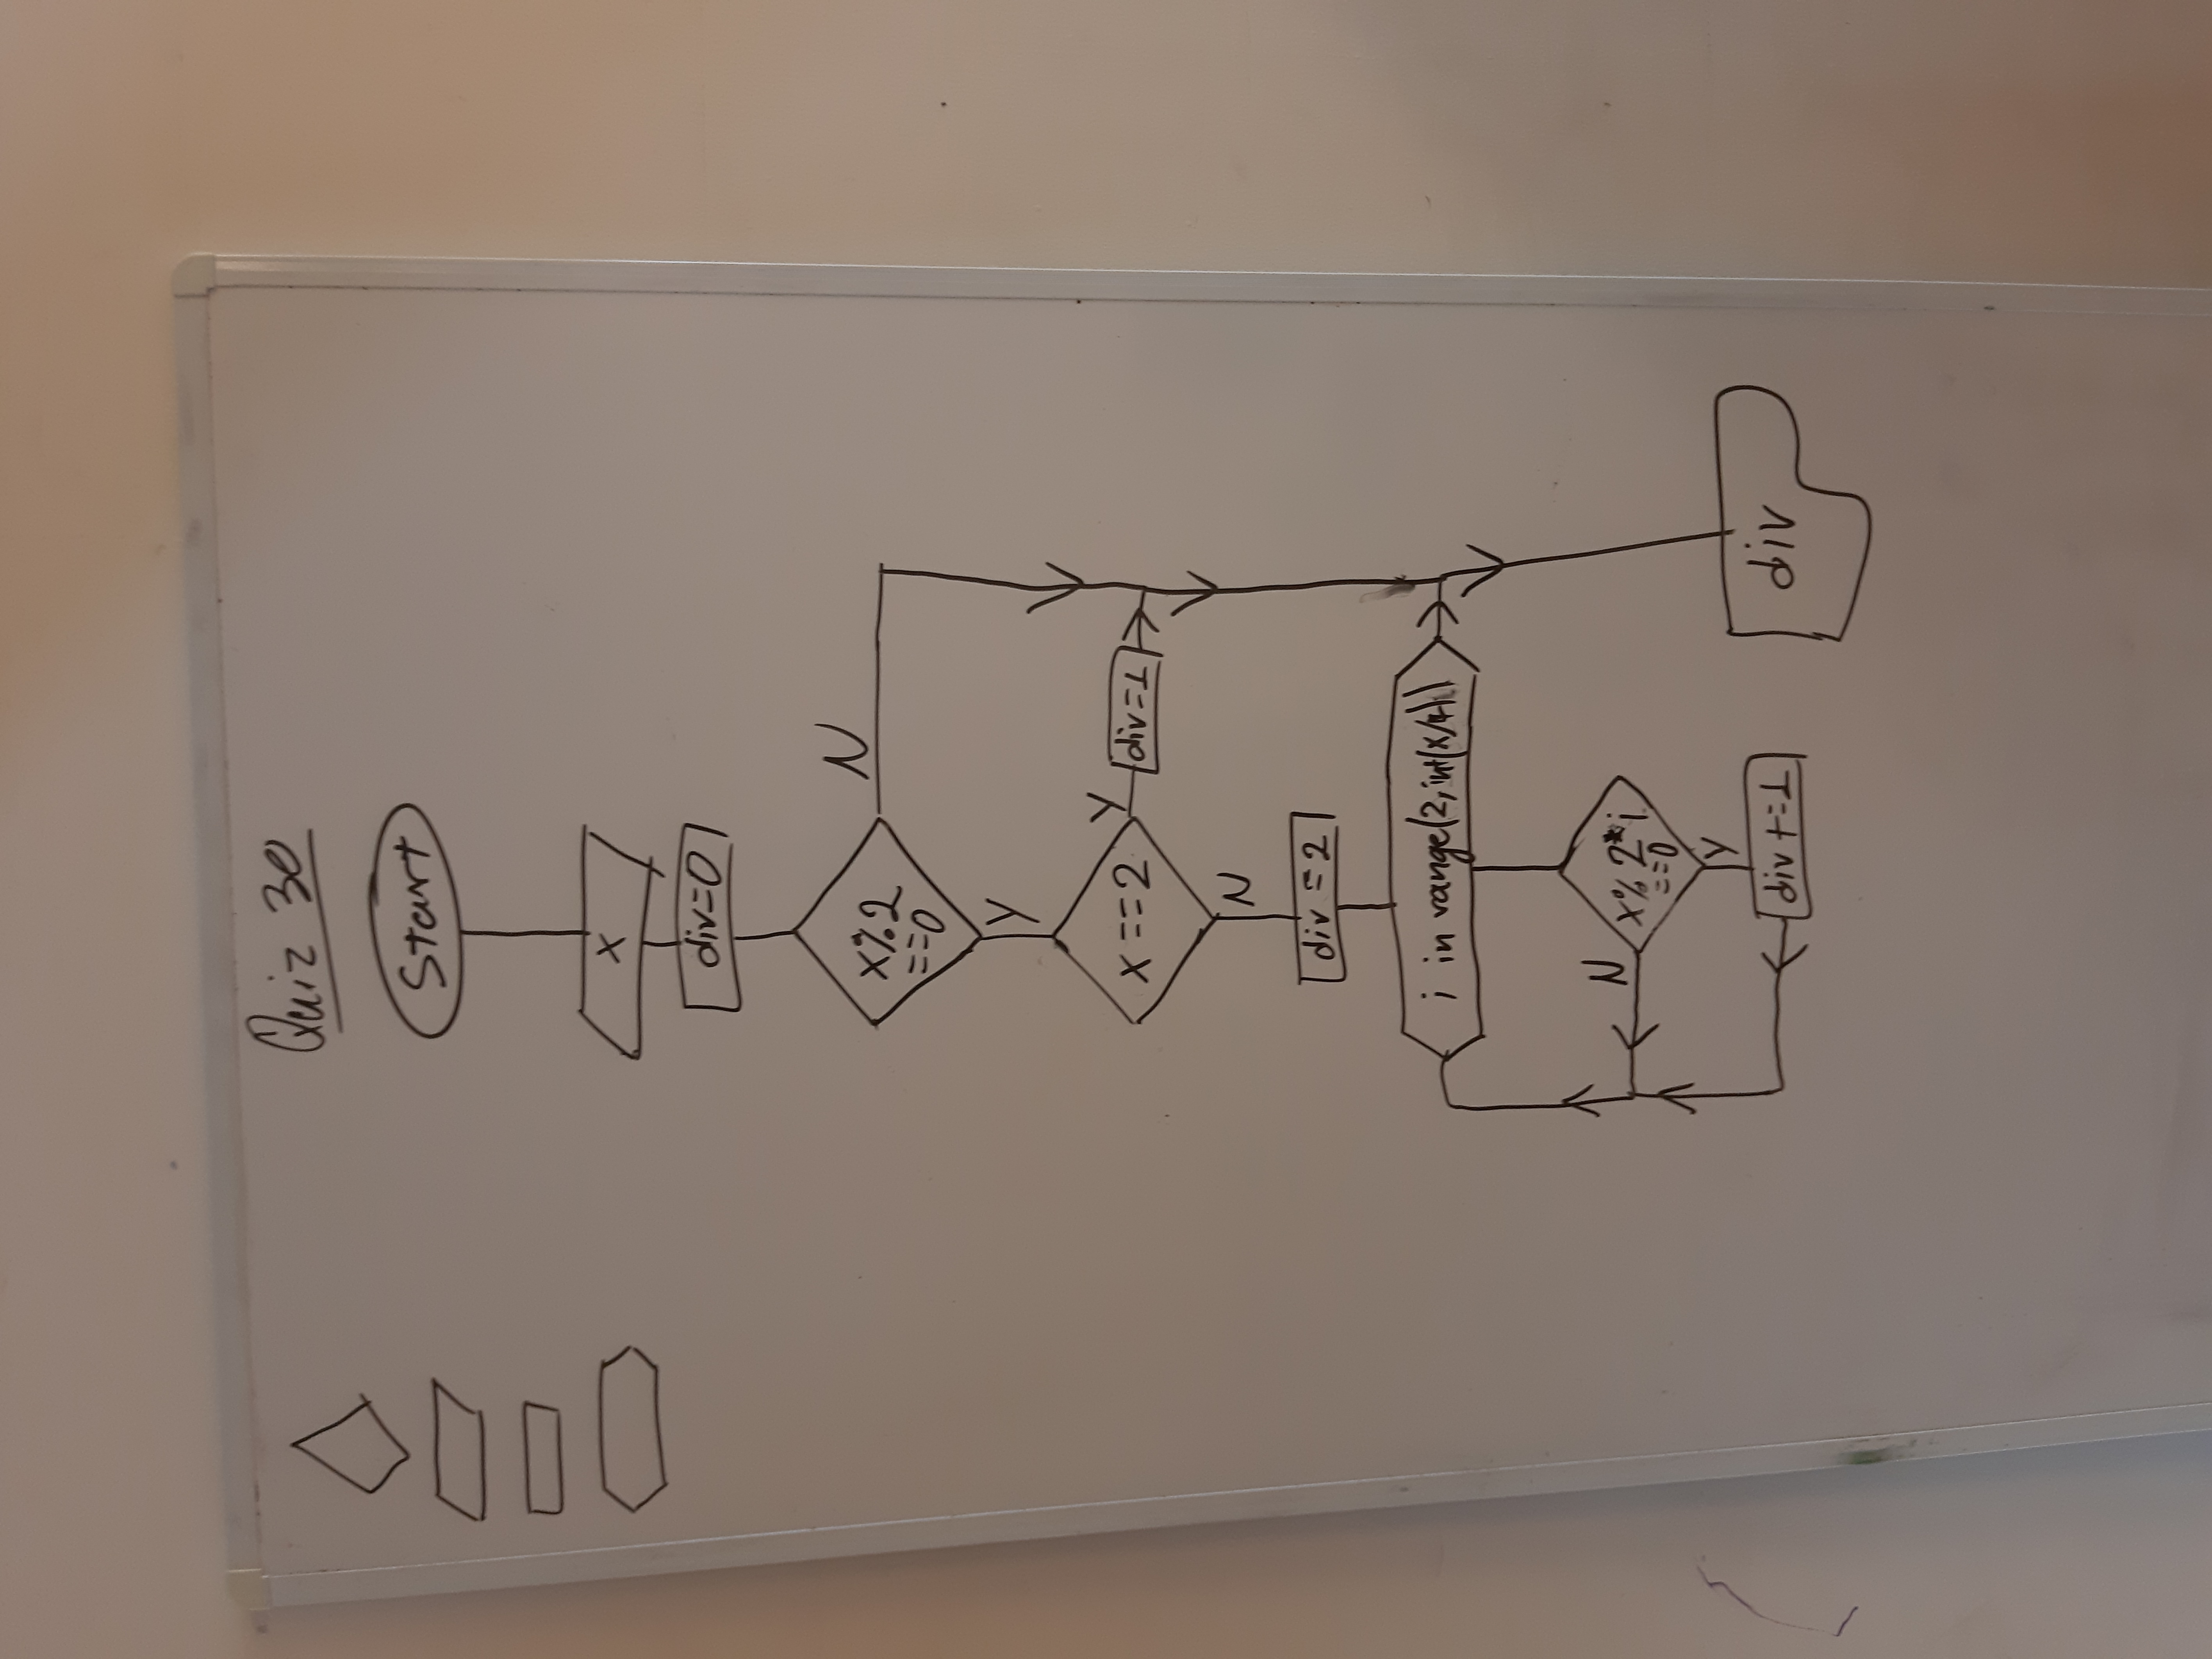 Quiz 30
Start
x
div=0
x%2
==0
N
Y
x==2
Y
div=1
N
div=2
i in range(2,int(x/4))
x%2*i
==0
N
Y
div+=1
div